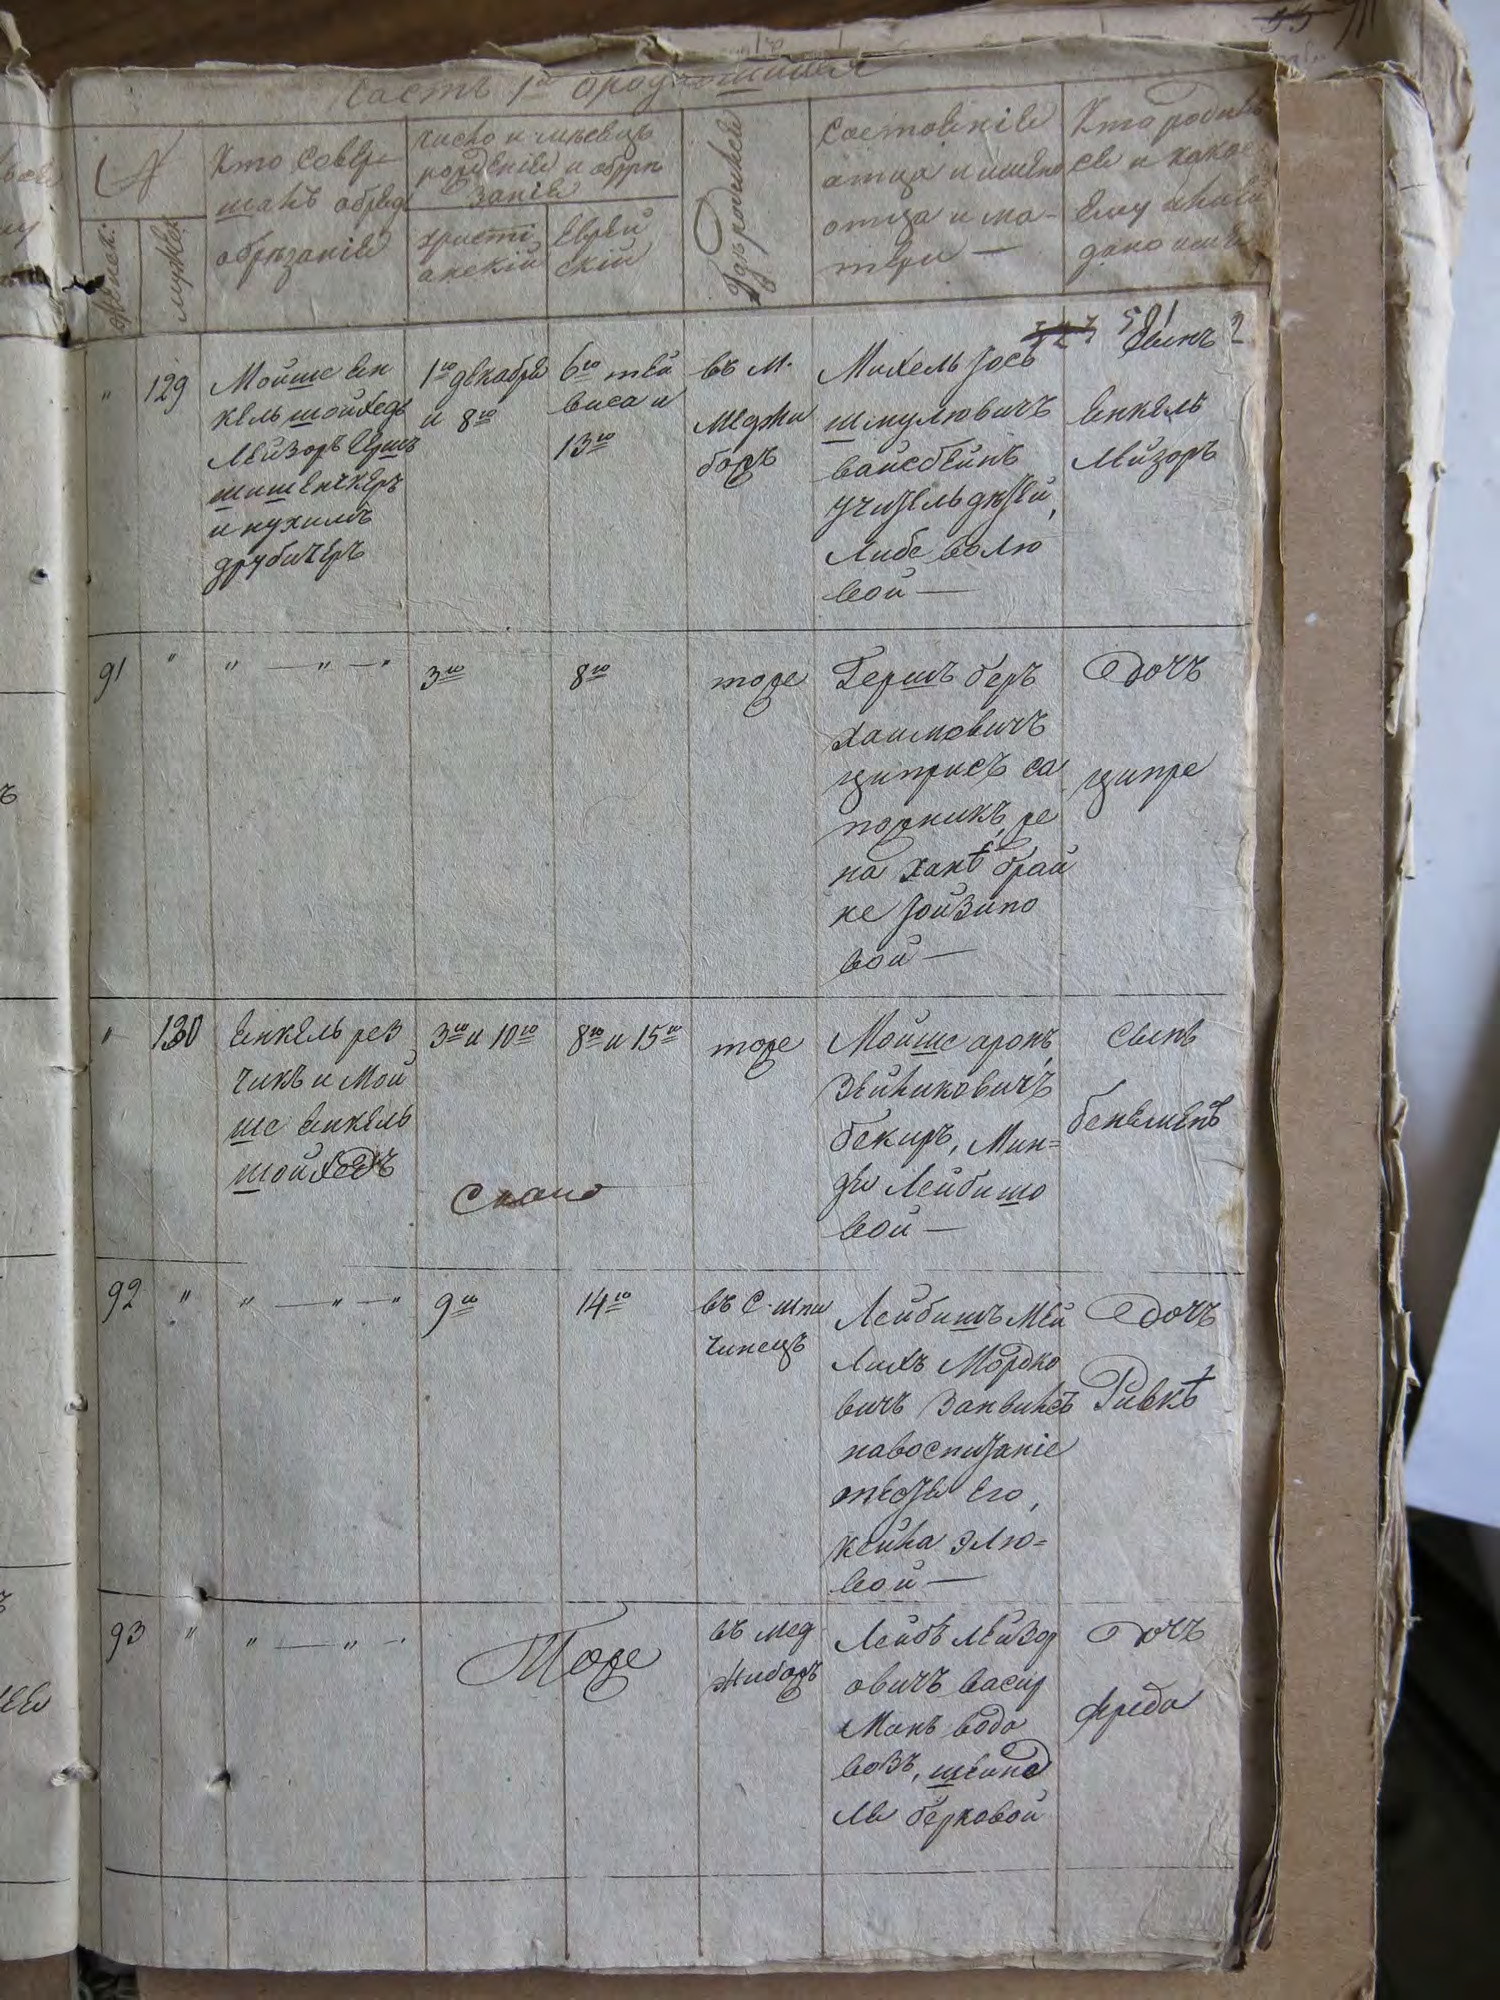 Часть 1я о родившихся
№
женск:
мужеск:
Кто совер-
шалъ обрядъ
обрѣзанія
число и мѣсяцъ
рожденія и обрѣ
занія
христі
анскій
Еврей
скій
Гдѣ родился
Состояніе
отца и имена
отца и ма-
тери —
Кто родил
ся и какое
Ему имя
дано
501
„ 129
Мойше Ен
кель шойхедъ
Лейзоръ Гершъ
и нухимъ
1го декабря
и 8го
6го тей
веса и
13го
въ м.
Меджи
божъ
Михель Іось
шмулювичъ
вайсбейнъ
учитель дѣтей,
Либе волю
вой —
Сынъ
Енкель
Лейзоръ
91 „ „ — „ — „
3го
8го
тоже
Гершъ беръ
Хаимовичъ
циприсъ са
пожникъ, же
на Ханѣ брай
не Іойзипо
вой —
Дочь
ципре
„ 130
Енкель рез
чикъ и Мой
ше Енкель
шойхедъ
3го и 10го
8го и 15го
тоже
Мойше аронъ
Зейликовичъ
бекиръ, Мин-
ди Лейбишо
вой —
Сынъ
беньеменъ
92 „ „ — „ — „
9го
14го
въ С. шпи
чинецъ
Лейбишъ Мей
лихъ Мордко
вичъ
тестя Его,
Элю-
вой —
Дочь
Ривкѣ
93 „ „ — „ — „
Тоже
въ мед
жибожъ
Лейбъ Лейзор
овичъ васир
Манъ водо
возъ, шейнд
ля берковой
Дочь
Фрейда